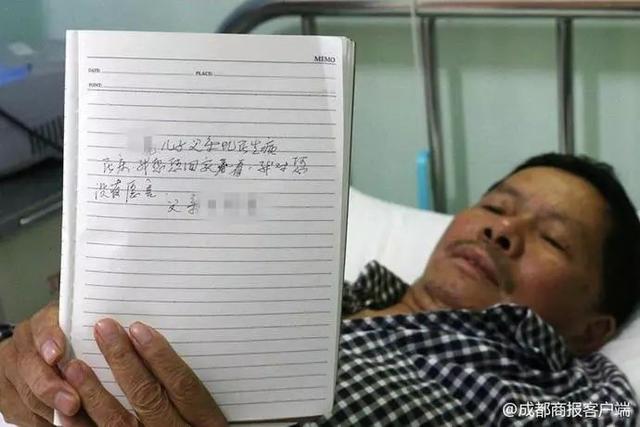 MEMO
DATE: PLACE:
POINT:
儿子父亲现在生病
在床,我想 回家看看,我对
没有怨言
父亲
@成都商报客户端